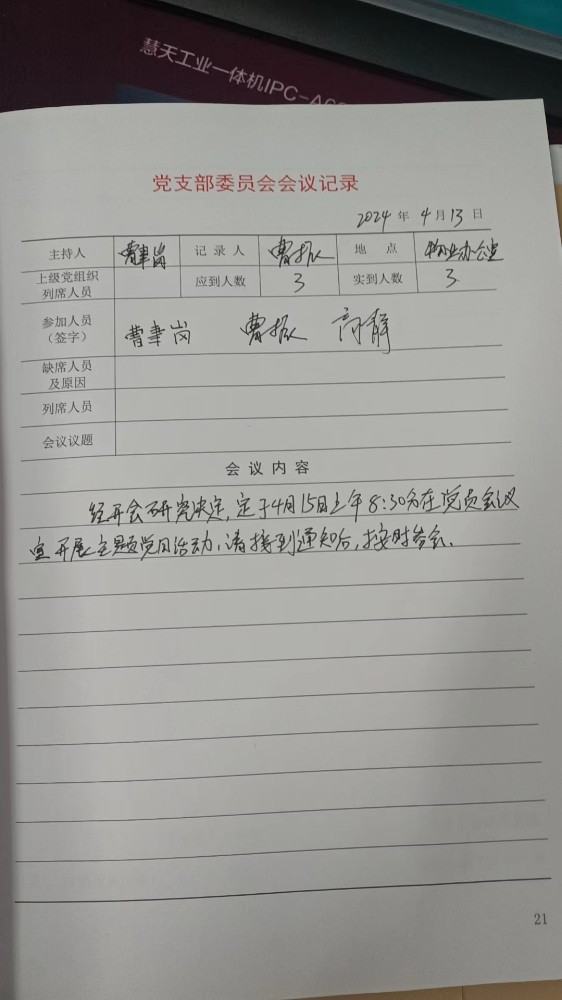 慧天工业一体机IPC-A6
党支部委员会会议记录
2024 年 4 月 13 日
主持人 曹聿岗 记录人 曹振 地点 物业办公室
上级党组织列席人员 应到人数 3 实到人数 3
参加人员（签字） 曹聿岗 曹振 高静
缺席人员及原因
列席人员
会议议题
会议内容
经开会研究决定,定于4月15日上午8:30分在党员会议
室开展主题党日活动,请接到通知后,按时参会.
21